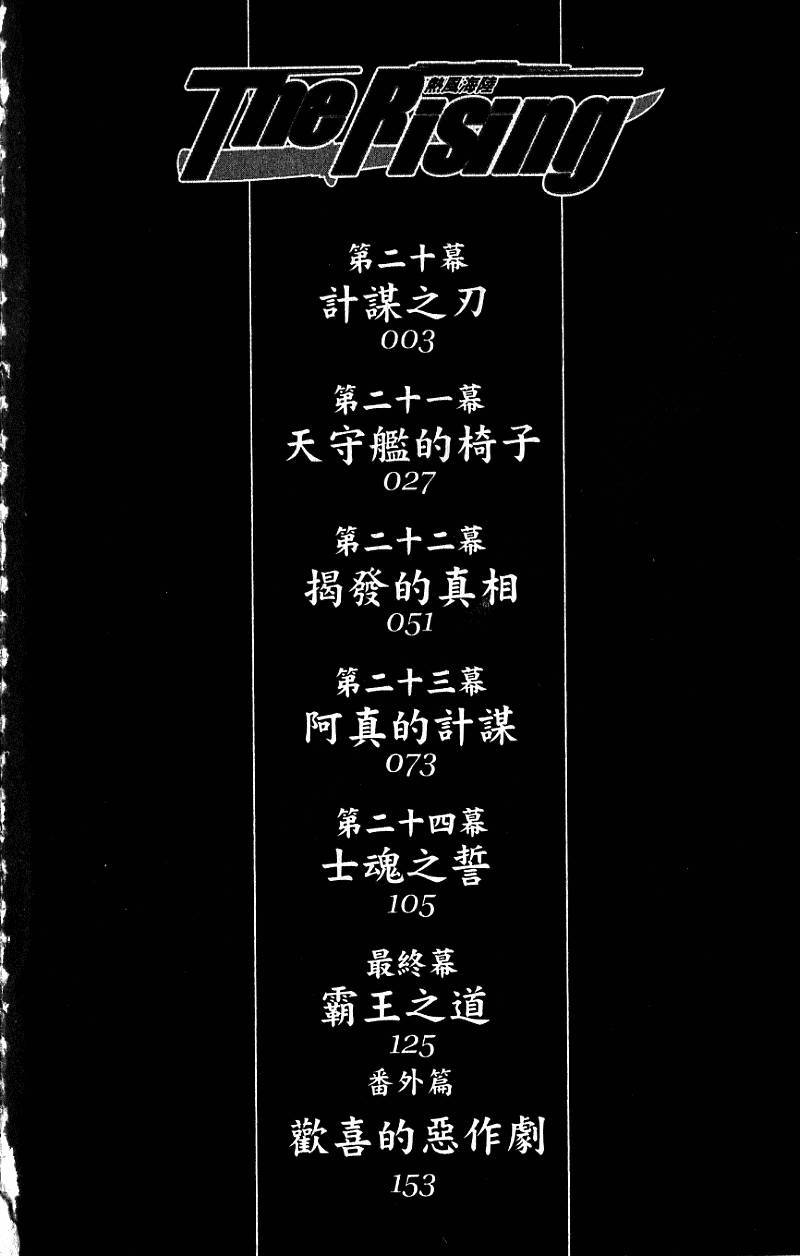 The Rising
熱風海陸
第二十幕
計謀之刃
003
第二十一幕
天守艦的椅子
027
第二十二幕
揭發的真相
051
第二十三幕
阿真的計謀
073
第二十四幕
士魂之誓
105
最終幕
霸王之道
125
番外篇
歡喜的惡作劇
153